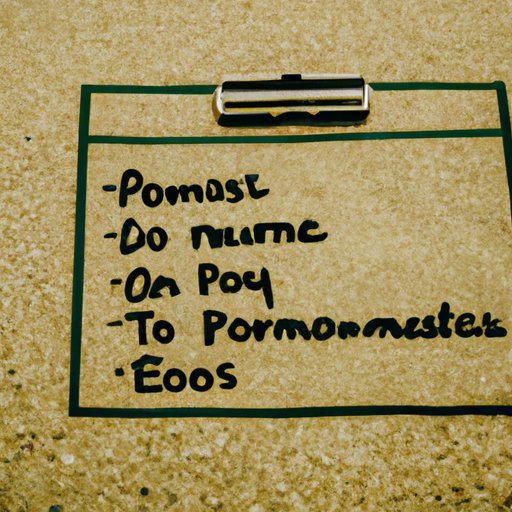 -Pomast
-Do nuume
-On Poy
-To Pormonmestes
·Eoos